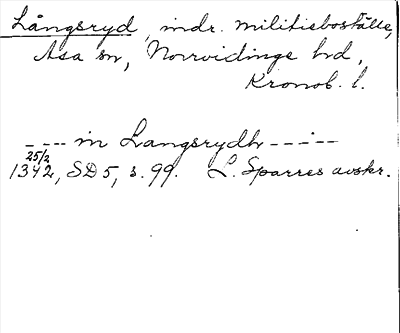 Långsryd, indr. militieboställe,
Asa sn, Norrvidinge hd,
Kronob. l.
_ _ _ in Langsrydh _ _ _ _ _
25/2
1342, SD 5, s. 99. L. Sparres avskr.